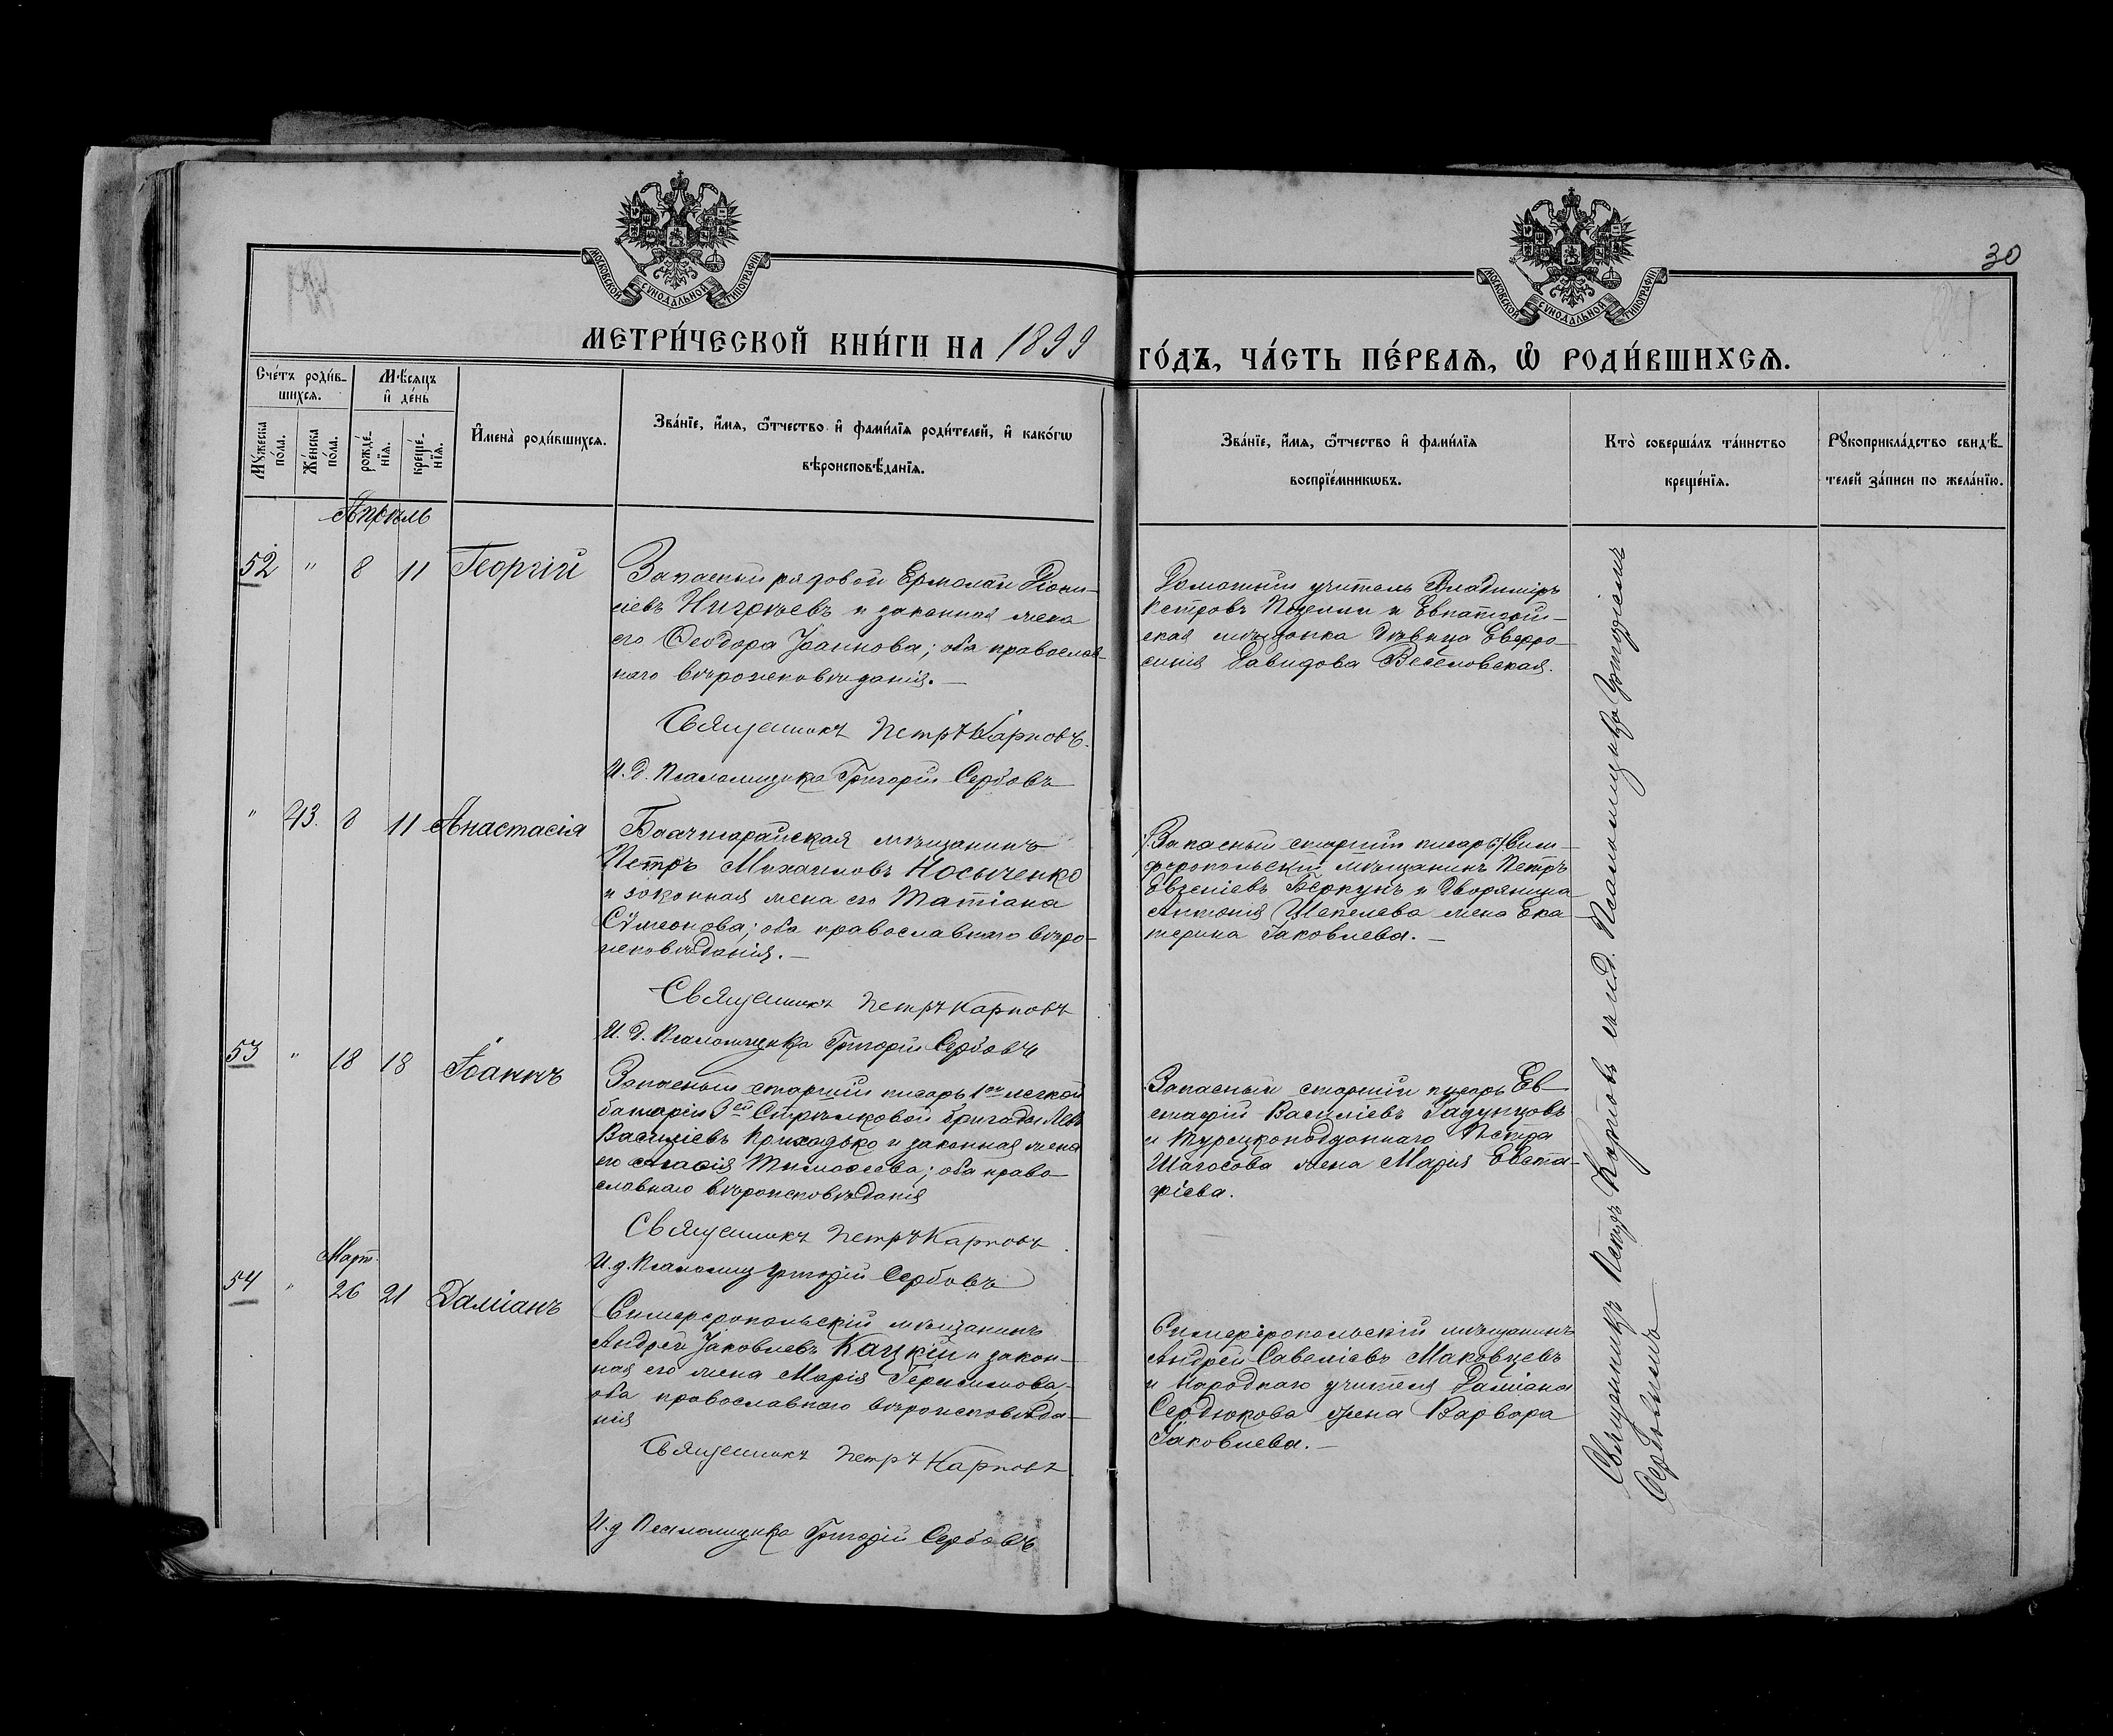 МОСКОВСКОЙ СУНОДАЛЬНОЙ ТИПОГРАФІИ
МОСКОВСКОЙ СУНОДАЛЬНОЙ ТИПОГРАФІИ
30
МЕТРИ́ЧЕСКОЙ КНИ́ГИ НА 1899
ГО́ДЪ, ЧА́СТЬ ПЕ́РВАѦ, Ѡ РОДИ́ВШИХСѦ.
Сче́тъ роди́в-
шихсѧ.
Мꙋ́жеска по́ла.
Же́нска по́ла.
Мѣ́сѧцъ
и҆ де́нь
рожде́-
нїѧ.
креще́-
нїѧ.
И҆мена̀ роди́вшихсѧ.
Зва́нїе, и҆́мѧ, ѻ҆́тчество и҆ фами́лїѧ роди́телей, и҆ како́гѡ
вѣроисповѣ́данїѧ.
Зва́нїе, и҆́мѧ, ѻ҆́тчество и҆ фами́лїѧ
воспрїе́мникѡвъ.
Кто̀ соверша́лъ та́инство
креще́нїѧ.
Рꙋкоприкла́дство свидѣ́-
телей за́писи по жела́нїю.
Апрѣль
52 " 8 11 Георгій
Запасный рядовой Ермолай Діони-
сіевъ Нигрѣевъ и законная жена
его Ѳеодора Іоаннова; оба православ-
наго вѣроисповѣданія. —
Священникъ Петръ Карповъ.
И. д. Псаломщика Григорій Сербовъ
Домашній учитель Владиміръ
Петровъ и Евпаторій-
ская мѣщанка дѣвица Евфро-
синія Давидова Веселовская.
" 43. 8 11 Анастасія
Бахчисарайская мѣщанинъ
Петръ Михаиловъ Носыченко
и законная жена его Татіана
Сѵмеонова; оба православнаго вѣро-
исповѣданія. —
Священникъ Петръ Карповъ
И. д. Псаломщика Григорій Сербовъ
Запасный старшій писарь Сим-
феропольскій мѣщанинъ Петръ
Евгеніевъ Беркунъ и дворянина
Антонія Шепелева жена Ека-
терина Іаковлева. —
53 " 18 18 Іоаннъ
Запасный старшій писарь 1ой легкой
батареи 3ей Стрѣлковой бригады Левъ
Василіевъ Приходько и законная жена
его Агаѳія Тимоѳеева; оба право-
славнаго вѣроисповѣданія
Священникъ Петръ Карповъ.
И. д. Псаломщ Григорій Сербовъ
Запасный старшій писарь Ев-
стафій Василіевъ
и турецкоподданнаго Петра
Шагосова жена Марія Евста-
фіева.
Март
54 " 26 21 Даміанъ
Симферопольскій мѣщанинъ
Андрей Іаковлевъ Кацкій и закон-
ная его жена Марія Герасимова,
оба православнаго вѣроисповѣда-
нія
Священникъ Петръ Карповъ.
И. д Псаломщика Григорій Сербовъ
Симферопольскій мѣщанинъ
Андрей Савеліевъ Маковцевъ
и народнаго учителя Даміана
Сердюкова жена Варвара
Іаковлева. —
Священникъ Петръ Карповъ съ и.д. Псаломщика Григоріемъ
Сербовымъ